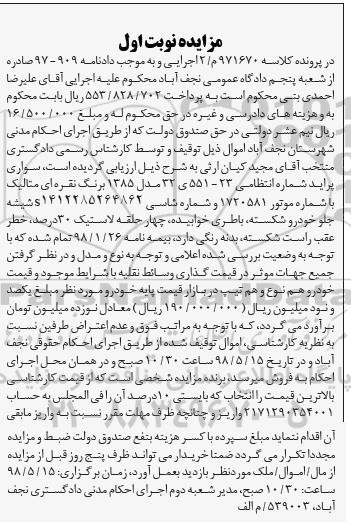 مزایده نوبت اول
در پرونده کلاسه ۹۷۱۶۷۰م/۲ اجرایی و به موجب دادنامه ۹۰۹-۹۷ صادره
از شعبه پنجم دادگاه عمومی نجف آباد محکوم علیه اجرایی آقای علیرضا
احمدی بنی محکوم است به پرداخت ۵۵۳/۸۲۸/۷۰۲ ریال بابت محکوم
به و هزینه های دادرسی و غیره در حق محکوم له و مبلغ ۱۶/۵۰۰/۰۰۰
ریال نیم عشر دولتی در حق صندوق دولت که از طریق اجرای احکام مدنی
شهرستان نجف آباد اموال ذیل توقیف و توسط کارشناس رسمی دادگستری
منتخب آقای مجید کیان ارثی به شرح ذیل ارزیابی گردیده است، سواری
پراید شماره انتظامی ۲۳-۵۵۱ی۳۲ مدل ۱۳۸۵ برنگ نقره ای متالیک
با شماره موتور ۱۷۲۰۵۸۱ و شماره شاسی S۱۴۱۲۲۸۵۲۶۴۸۶۲ شیشه
جلو خودرو شکسته، باطری خوابیده، چهار حلقه لاستیک ۳۰درصد، خطر
عقب راست شکسته، بدنه رنگی دارد، بیمه نامه ۹۸/۱/۲۶ تمام شده که با
توجه به وضعیت بررسی شده اعلامی و توجه به نوع و مدل و در نظر گرفتن
جمیع جهات موثر در قیمت گذاری وسائط نقلیه با شرایط موجود و قیمت
خودرو هم نوع و هم تیپ در بازار قیمت پایه خودرو مورد نظر مبلغ یکصد
و نود میلیون ریال (۱۹۰/۰۰۰/۰۰۰ ریال) معادل نوزده میلیون تومان
برآورد می گردد، که با توجه به مراتب فوق و عدم اعتراض طرفین نسبت
به نظریه کارشناسی، اموال توقیف شده از طریق اجرای احکام حقوقی نجف
آباد و در تاریخ ۹۸/۵/۱۵ ساعت ۱۰/۳۰ صبح و در همان محل اجرای
احکام به فروش میرسد، برنده مزایده شخصی است که از قیمت کارشناسی
بالاترین قیمت را انتخاب که بایستی ۱۰درصد آن را فی المجلس به حساب
۲۱۷۱۲۹۰۳۵۴۰۰۱ واریز و چنانچه ظرف مهلت مقرر نسبت به واریز مابقی
آن اقدام ننماید مبلغ سپرده با کسر هزینه بنفع صندوق دولت ضبط و مزایده
مجددا تکرار می گردد ضمنا خریدار می تواند ظرف پنج روز قبل از مزایده
از مال/اموال/ملک موردنظر بازدید بعمل آورد، زمان برگزاری: ۹۸/۵/۱۵
ساعت: ۱۰/۳۰ صبح، مدیر شعبه دوم اجرای احکام مدنی دادگستری نجف
آباد، ۵۳۹۰۰۳/م الف